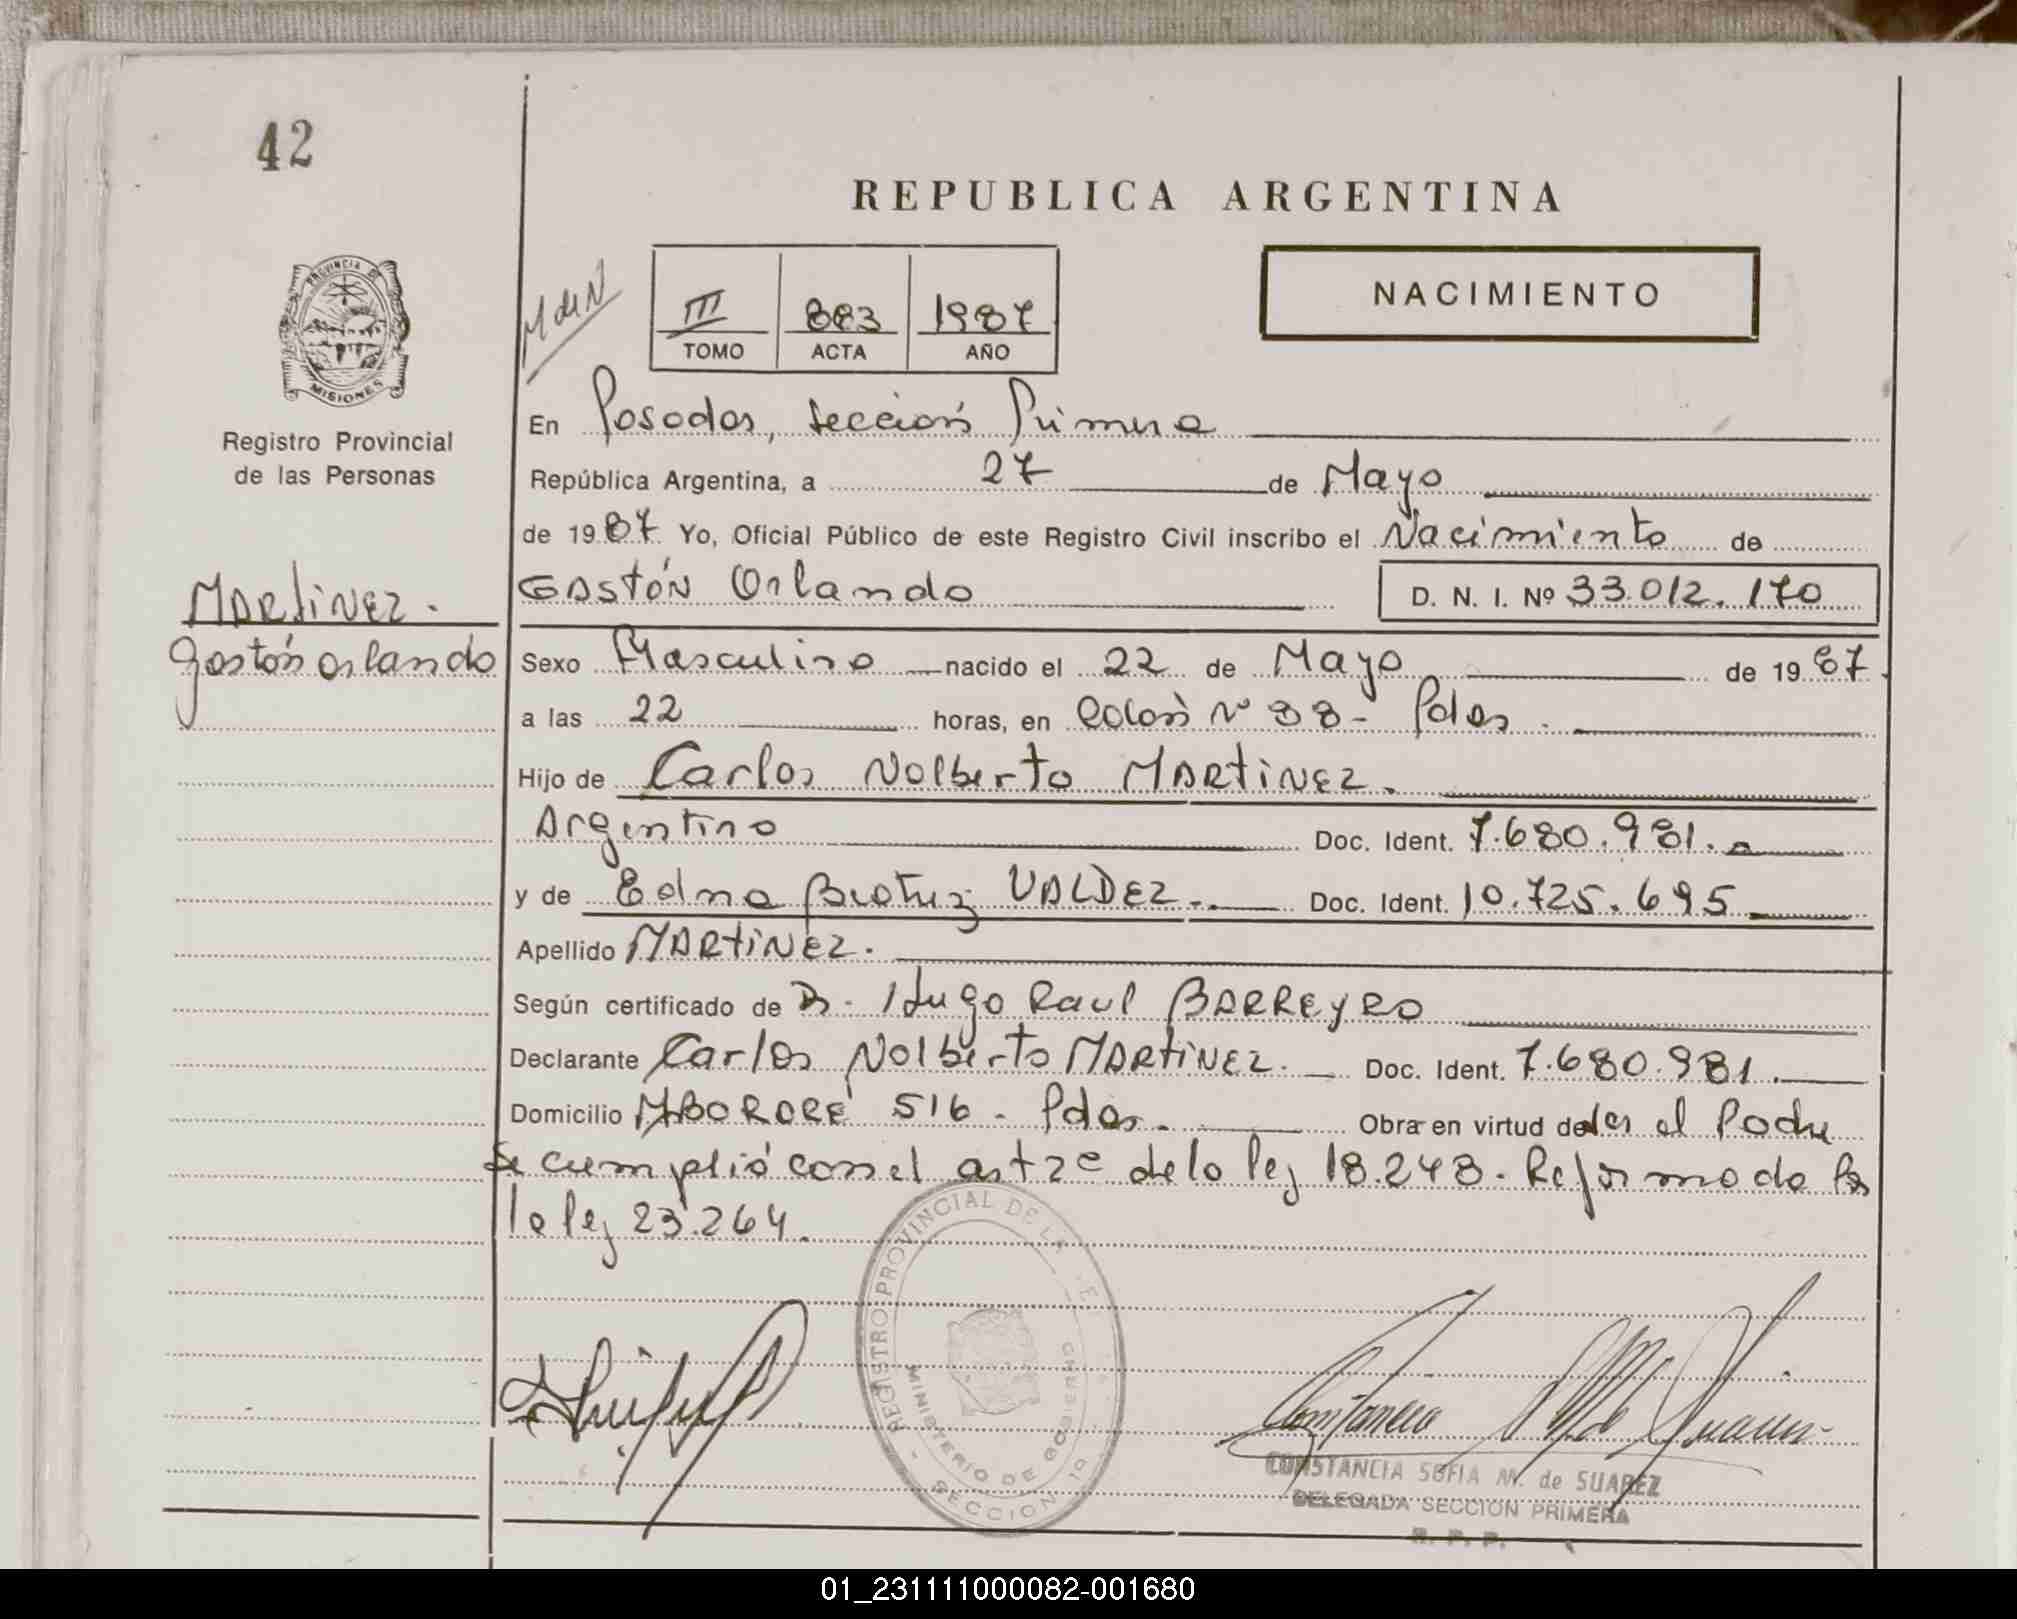 42
REPUBLICA ARGENTINA
PROVINCIA DE
MISIONES
Registro Provincial
de las Personas
III 883 1987
TOMO ACTA AÑO
NACIMIENTO
En Posadas, Sección Primera
República Argentina, a 27 de Mayo
de 1987 Yo, Oficial Público de este Registro Civil inscribo el Nacimiento de
MARTINEZ.
Gastón Orlando
GASTÓN Orlando D. N. I. Nº 33.012.170
Sexo Masculino nacido el 22 de Mayo de 1987
a las 22 horas, en Colón Nº 88 - Pdas.
Hijo de Carlos Nolberto MARTINEZ.
Argentino Doc. Ident. 7.680.981.
y de Edna Beatriz VALDEZ. Doc. Ident. 10.725.695
Apellido MARTINEZ.
Según certificado de Dr. Hugo Raul BARREYRO
Declarante Carlos Nolberto MARTINEZ. Doc. Ident. 7.680.981.
Domicilio MBORORÉ 516 - Pdas. Obra en virtud de ser el Padre
Se cumplió con el art 2º de la ley 18.248. Reformada por
la ley 23.264.
REGISTRO PROVINCIAL DE LAS
MINISTERIO DE GOBIERNO
SECCION 1º
Constancia M. de Suarez
CONSTANCIA SOFIA M. de SUAREZ
DELEGADA SECCION PRIMERA
R. P. P.
01_231111000082-001680